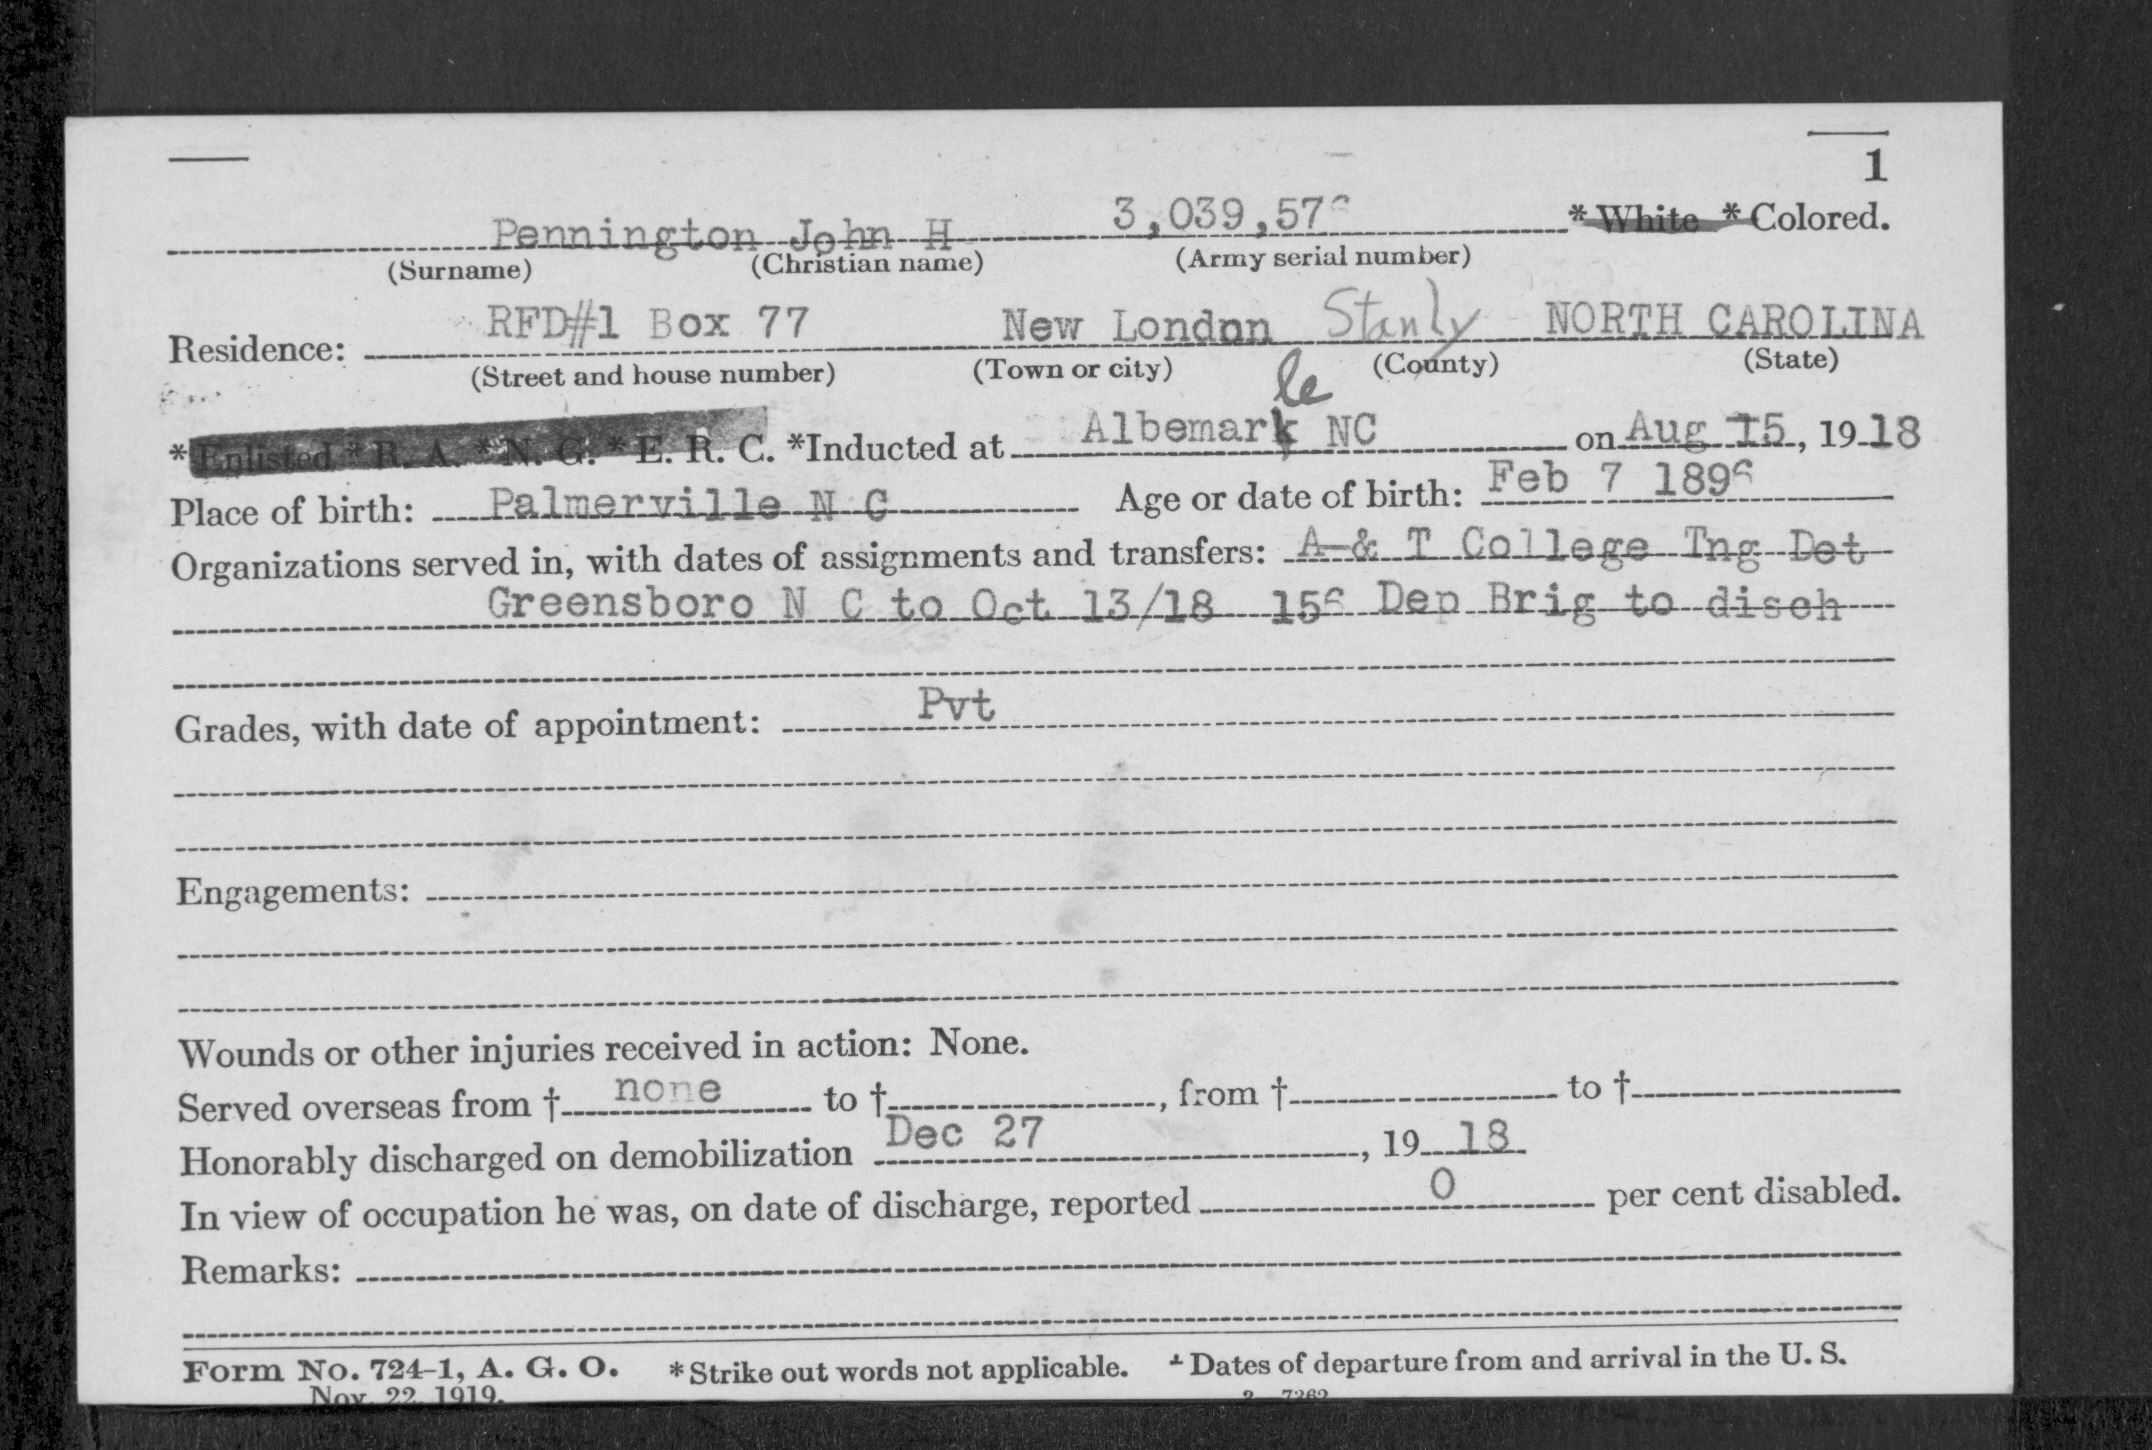 1
Pennington John H 3,039,576 *White *Colored.
(Surname) (Christian name) (Army serial number)
Residence: RFD#1 Box 77 New London Stanly NORTH CAROLINA
(Street and house number) (Town or city) (County) (State)
*Enlisted *R. A. *N. G. *E. R. C. *Inducted at Albemarle NC on Aug 15, 1918
Place of birth: Palmerville N C Age or date of birth: Feb 7 1896
Organizations served in, with dates of assignments and transfers: A & T College Tng Det
Greensboro N C to Oct 13/18 156 Dep Brig to disch
Grades, with date of appointment: Pvt
Engagements:
Wounds or other injuries received in action: None.
Served overseas from † none to †, from † to †
Honorably discharged on demobilization Dec 27, 19 18
In view of occupation he was, on date of discharge, reported 0 per cent disabled.
Remarks:
Form No. 724-1, A. G. O. *Strike out words not applicable. †Dates of departure from and arrival in the U. S.
Nov. 22, 1919. 3—7262